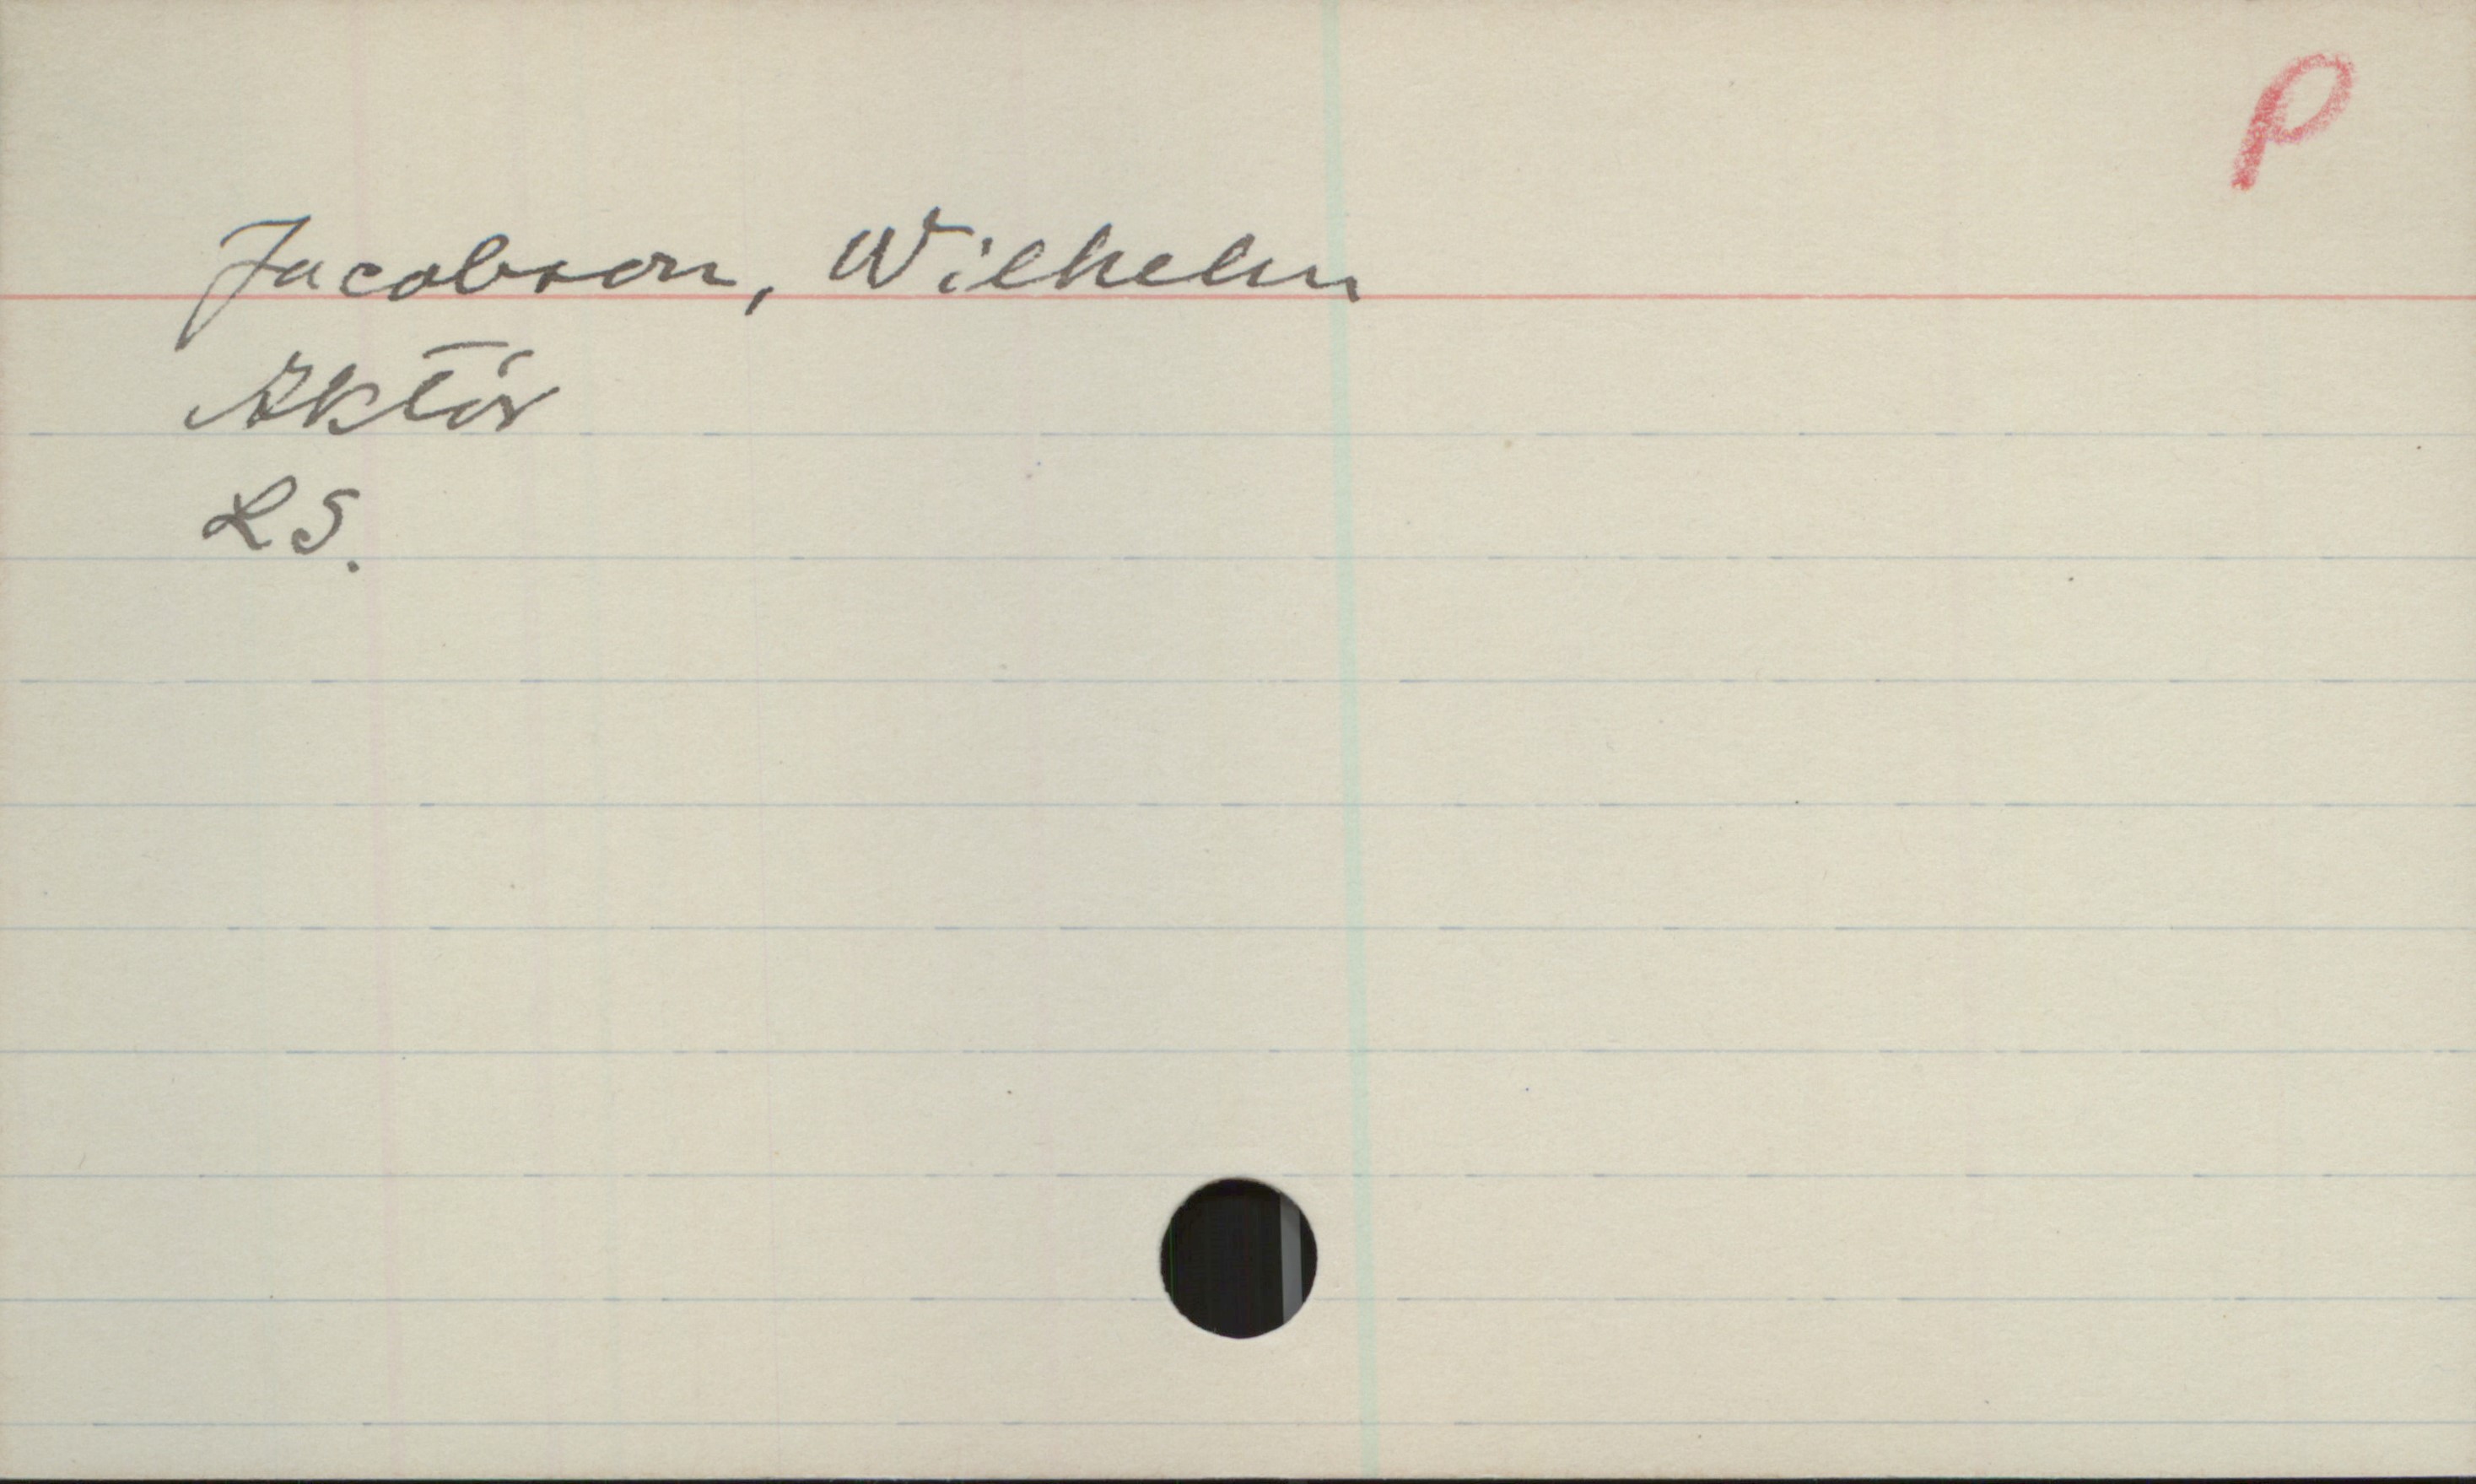 P
Jacobson, Wilhelm
Aktör
LS.